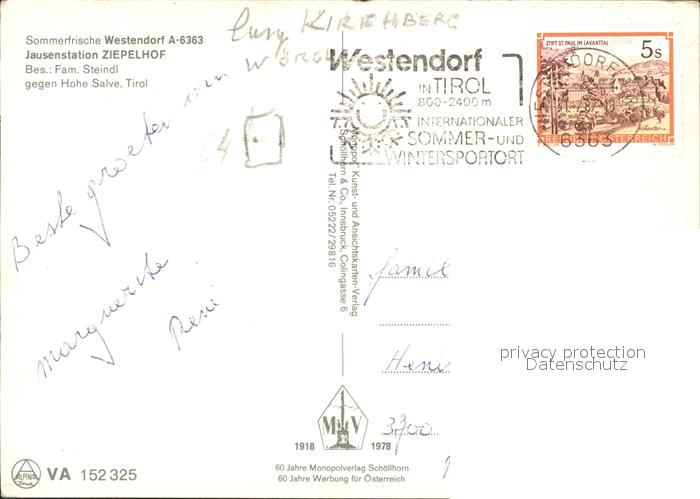 Sommerfrische Westendorf A-6363
Jausenstation ZIEPELHOF
Bes.: Fam. Steindl
gegen Hohe Salve, Tirol
KIRCHBERG
WÖRGL
Westendorf
IN TIROL
800-2400 m
INTERNATIONALER
SOMMER- UND
WINTERSPORTORT
STIFT ST. PAUL IM LAVANTTAL
5s
REPUBLIK ÖSTERREICH
6363
Beste groeten van
Marguerite
René
Monopol Kunst- und Ansichtskarten-Verlag
Schöllhorn & Co., Innsbruck, Colingasse 6
Tel. Nr. 05222/29816
Famil
3700
privacy protection
Datenschutz
M V
1918 1978
60 Jahre Monopolverlag Schöllhorn
60 Jahre Werbung für Österreich
ALPINA
VA 152 325